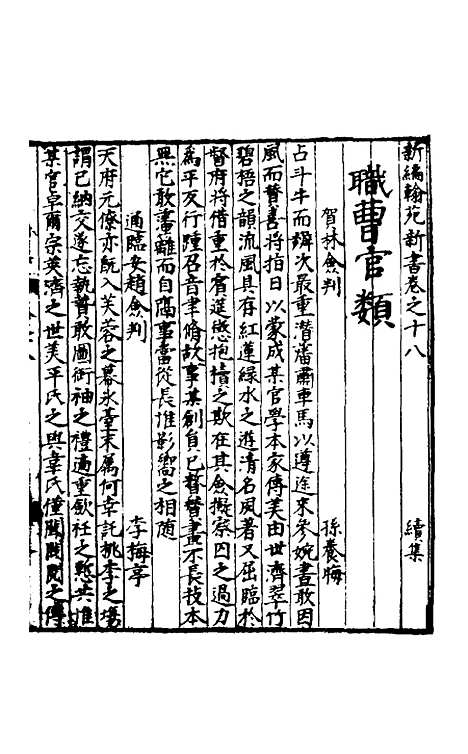 新編翰苑新書卷之十八 續集
職曹官類
賀林僉判 孫養晦
占斗牛而辨次最重潛藩肅車馬以遵途來參婉畫敢因
風而贊喜將指日以蒙成某官學本家傳美由世濟翠竹
碧梧之韻流風具存紅蓮綠水之遊清名風著又屈臨於
督府將借重於賓筵愁抱積之欺在其僉擬察囚之過力
為平反行踵召音聿脩故事某創負已督督畫不長技本
無它敢盡雖而自隔事當從長惟影嚮之相隨
通臨安趙僉判 李梅亭
天府元僚亦既入芙蓉之幕氷臺末屬何幸託桃李之場
謂已納交遂忘執贄敢圖衔袖之禮過重歛衽之慙共惟
某官卓爾宗英濟之世美平氏之與韋氏僅聞閥閱之傳